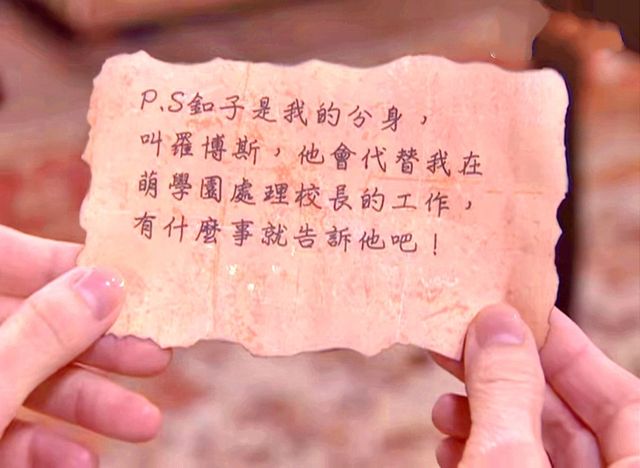 P.S釦子是我的分身，
叫羅博斯，他會代替我在
萌學園處理校長的工作，
有什麼事就告訴他吧！